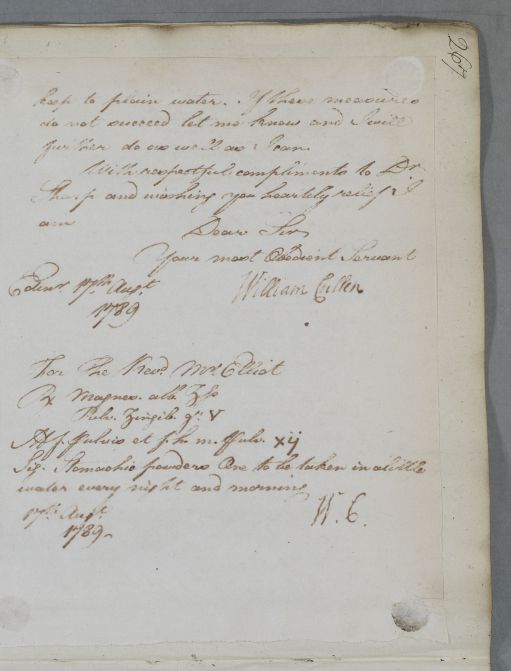 267
keep to plain water. If these measures
do not succeed let me know and I will
further do as well as I can.
With respectful compliments to Dr.
Sharp and wishing you heartely relief I
am
Dear Sir
Your most Obedient Servant
William Cullen
Edinr. 17th. Augt.
1789
For The Revd. Mr. Elliot
Rx Magnes. alb. ʒſs
Pulv. Zingib. gr. V
M f. pulvis et f. h. m. pulv. xij
Sig. Stomachic powders One to be taken in a little
water every night and morning
17th. Augt.
1789.
W. C.